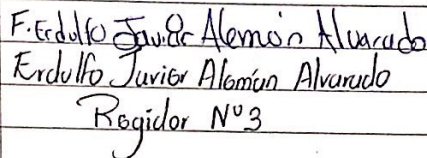 F. Erdulfo Javier Alemán Alvarado
Erdulfo Javier Alemán Alvarado
Regidor Nº3